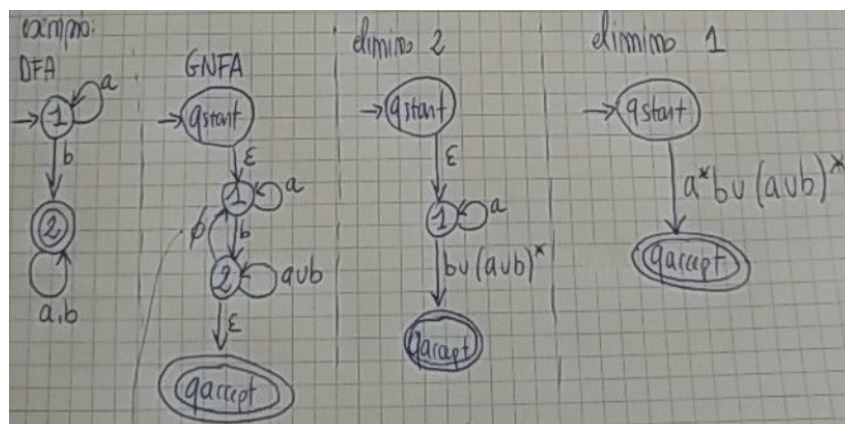 esempio:
DFA
1
a
b
2
a,b
GNFA
qstart
ε
1
a
ϕ
b
2
a∪b
ε
qaccept
elimino 2
qstart
ε
1
a
b∪(a∪b)*
qaccept
elimino 1
qstart
a*b∪(a∪b)*
qaccept